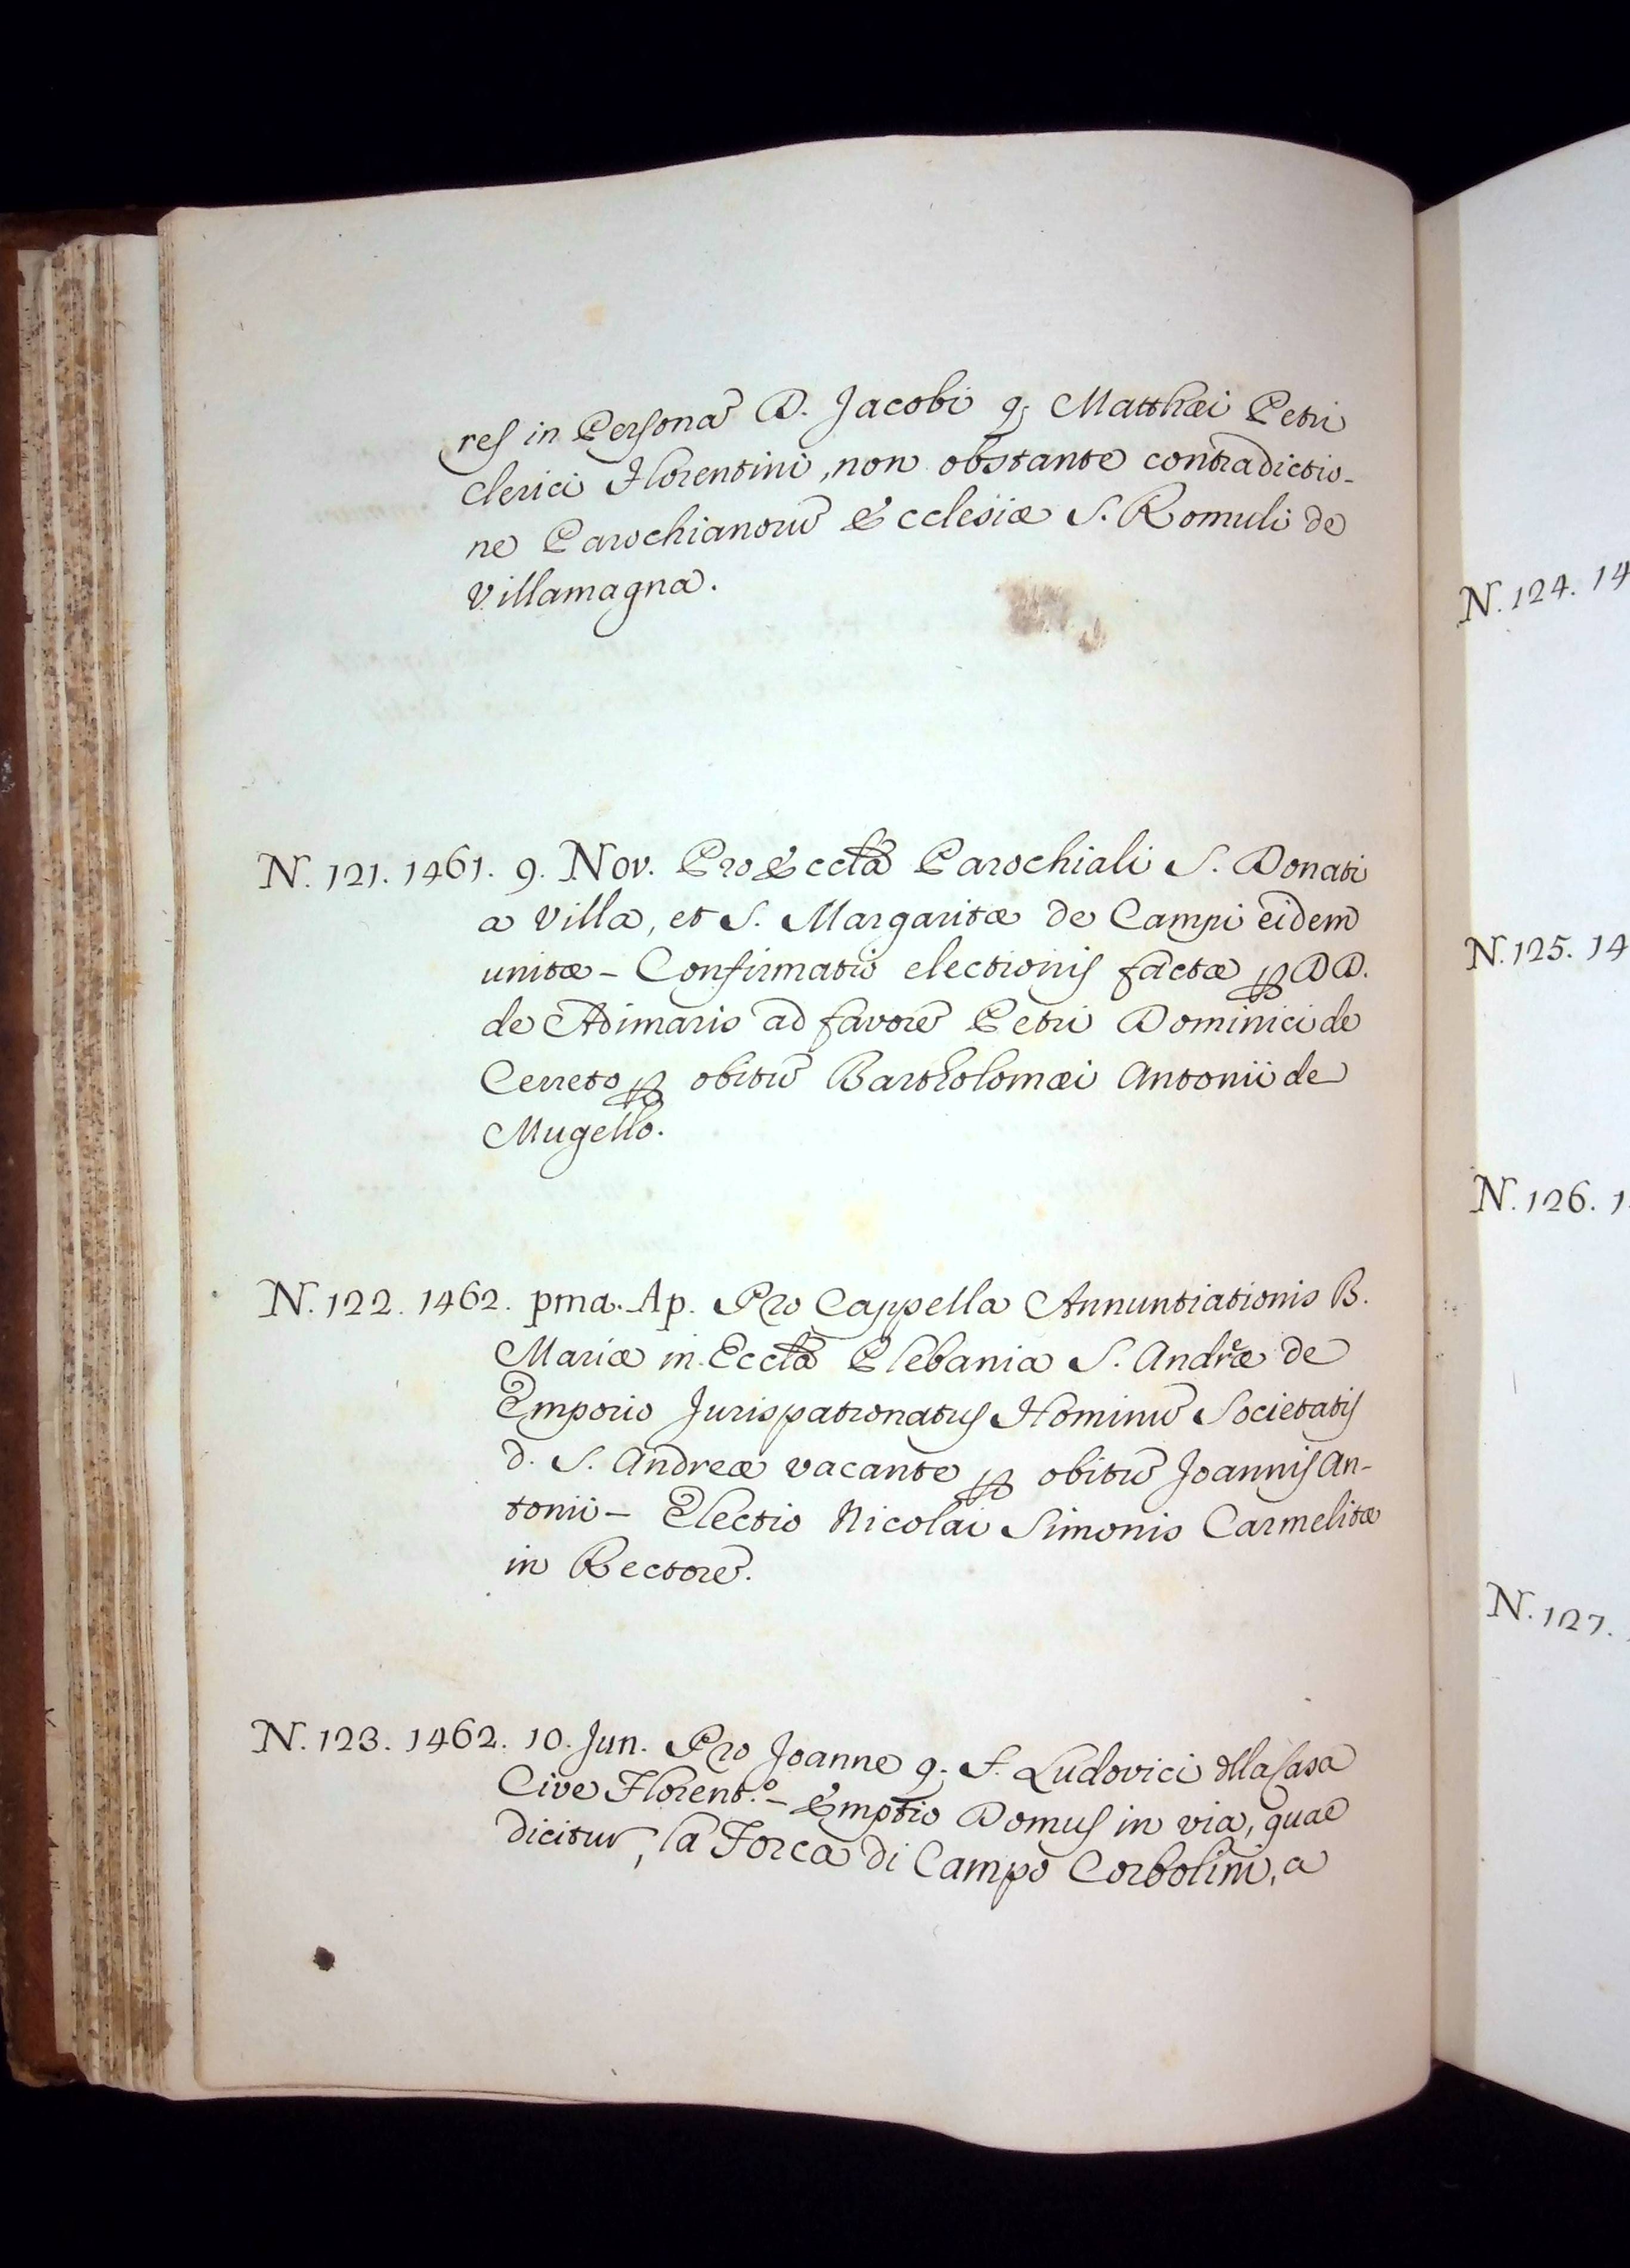 res in Personã D. Jacobi q; Matthæi Petri
Clerici Florentini, non obstante contradictio-
ne Parochianorũ Ecclesiæ S. Romuli de
Villamagna.
N. 121. 1461. 9. Nov. Pro Ecctã Parochiali S. Donati
a Villa, et S. Margaritæ de Campi eidem
unitæ - Confirmatio electionis factæ ꝑ DD.
de Adimaris ad favorẽ Petri Dominici de
Cerreto ꝑ obitũ Bartholomæi Antonii de
Mugello.
N. 122. 1462. pma. Ap. Pro Cappella Annuntiationis B.
Mariæ in Ecctã Plebania S. Andreæ de
Emporio Jurispatronatus Hominũ Societatis
d. S. Andreæ vacante ꝑ obitũ Joannis An-
tonii - Electio Nicolai Simonis Carmelitæ
in Rectorẽ.
N. 123. 1462. 10. Jun. Pro Joanne q. S. Ludovici dlla Casa
Cive Florent.º - Emptio Domus in via, quae
dicitur, la Forca di Campo Corbolini, a
N. 124. 14
N. 125. 14
N. 126. 1
N. 127.